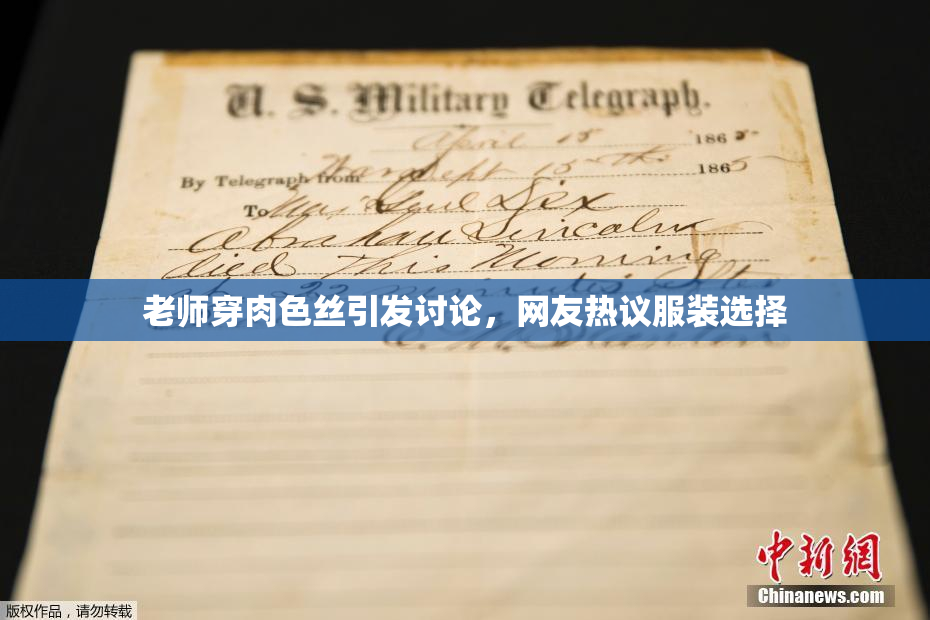 U. S. Military Telegraph.
April 15 1865
By Telegraph from War Dept 15th 1865
To Maj Genl Dix
Abraham Lincoln
died This Morning
at 22 minutes after
老师穿肉色丝引发讨论，网友热议服装选择
E. M. Stanton
中新网
Chinanews.com
版权作品，请勿转载